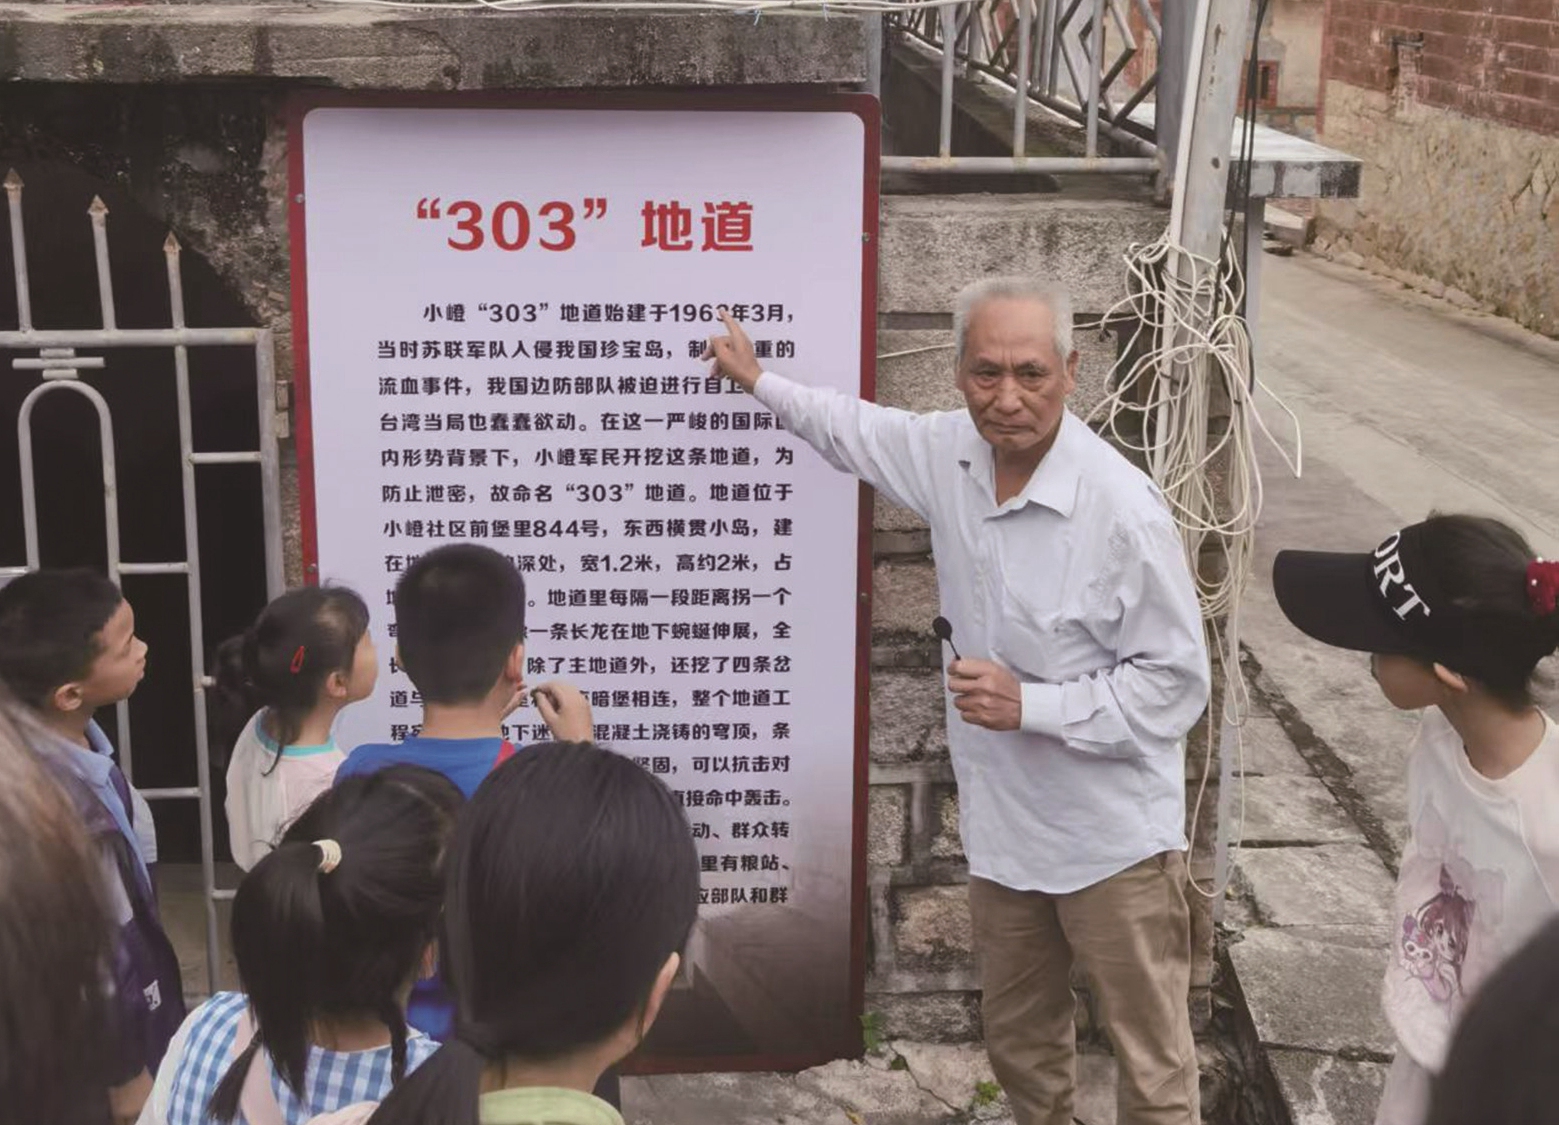 “303”地道
小嶝“303”地道始建于196年3月，
当时苏联军队入侵我国珍宝岛，制重的
流血事件，我国边防部队被迫进行自卫
台湾当局也蠢蠢欲动。在这一严峻的国际
内形势背景下，小嶝军民开挖这条地道，为
防止泄密，故命名“303”地道。地道位于
小嶝社区前堡里844号，东西横贯小岛，建
在地深处，宽1.2米，高约2米，占
。地道里每隔一段距离拐一个
一条长龙在地下蜿蜒伸展，全
长除了主地道外，还挖了四条岔
道与暗堡相连，整个地道工
程下迷混凝土浇铸的穹顶，条
坚固，可以抗击对
直接命中轰击。
动、群众转
里有粮站、
应部队和群
ORT